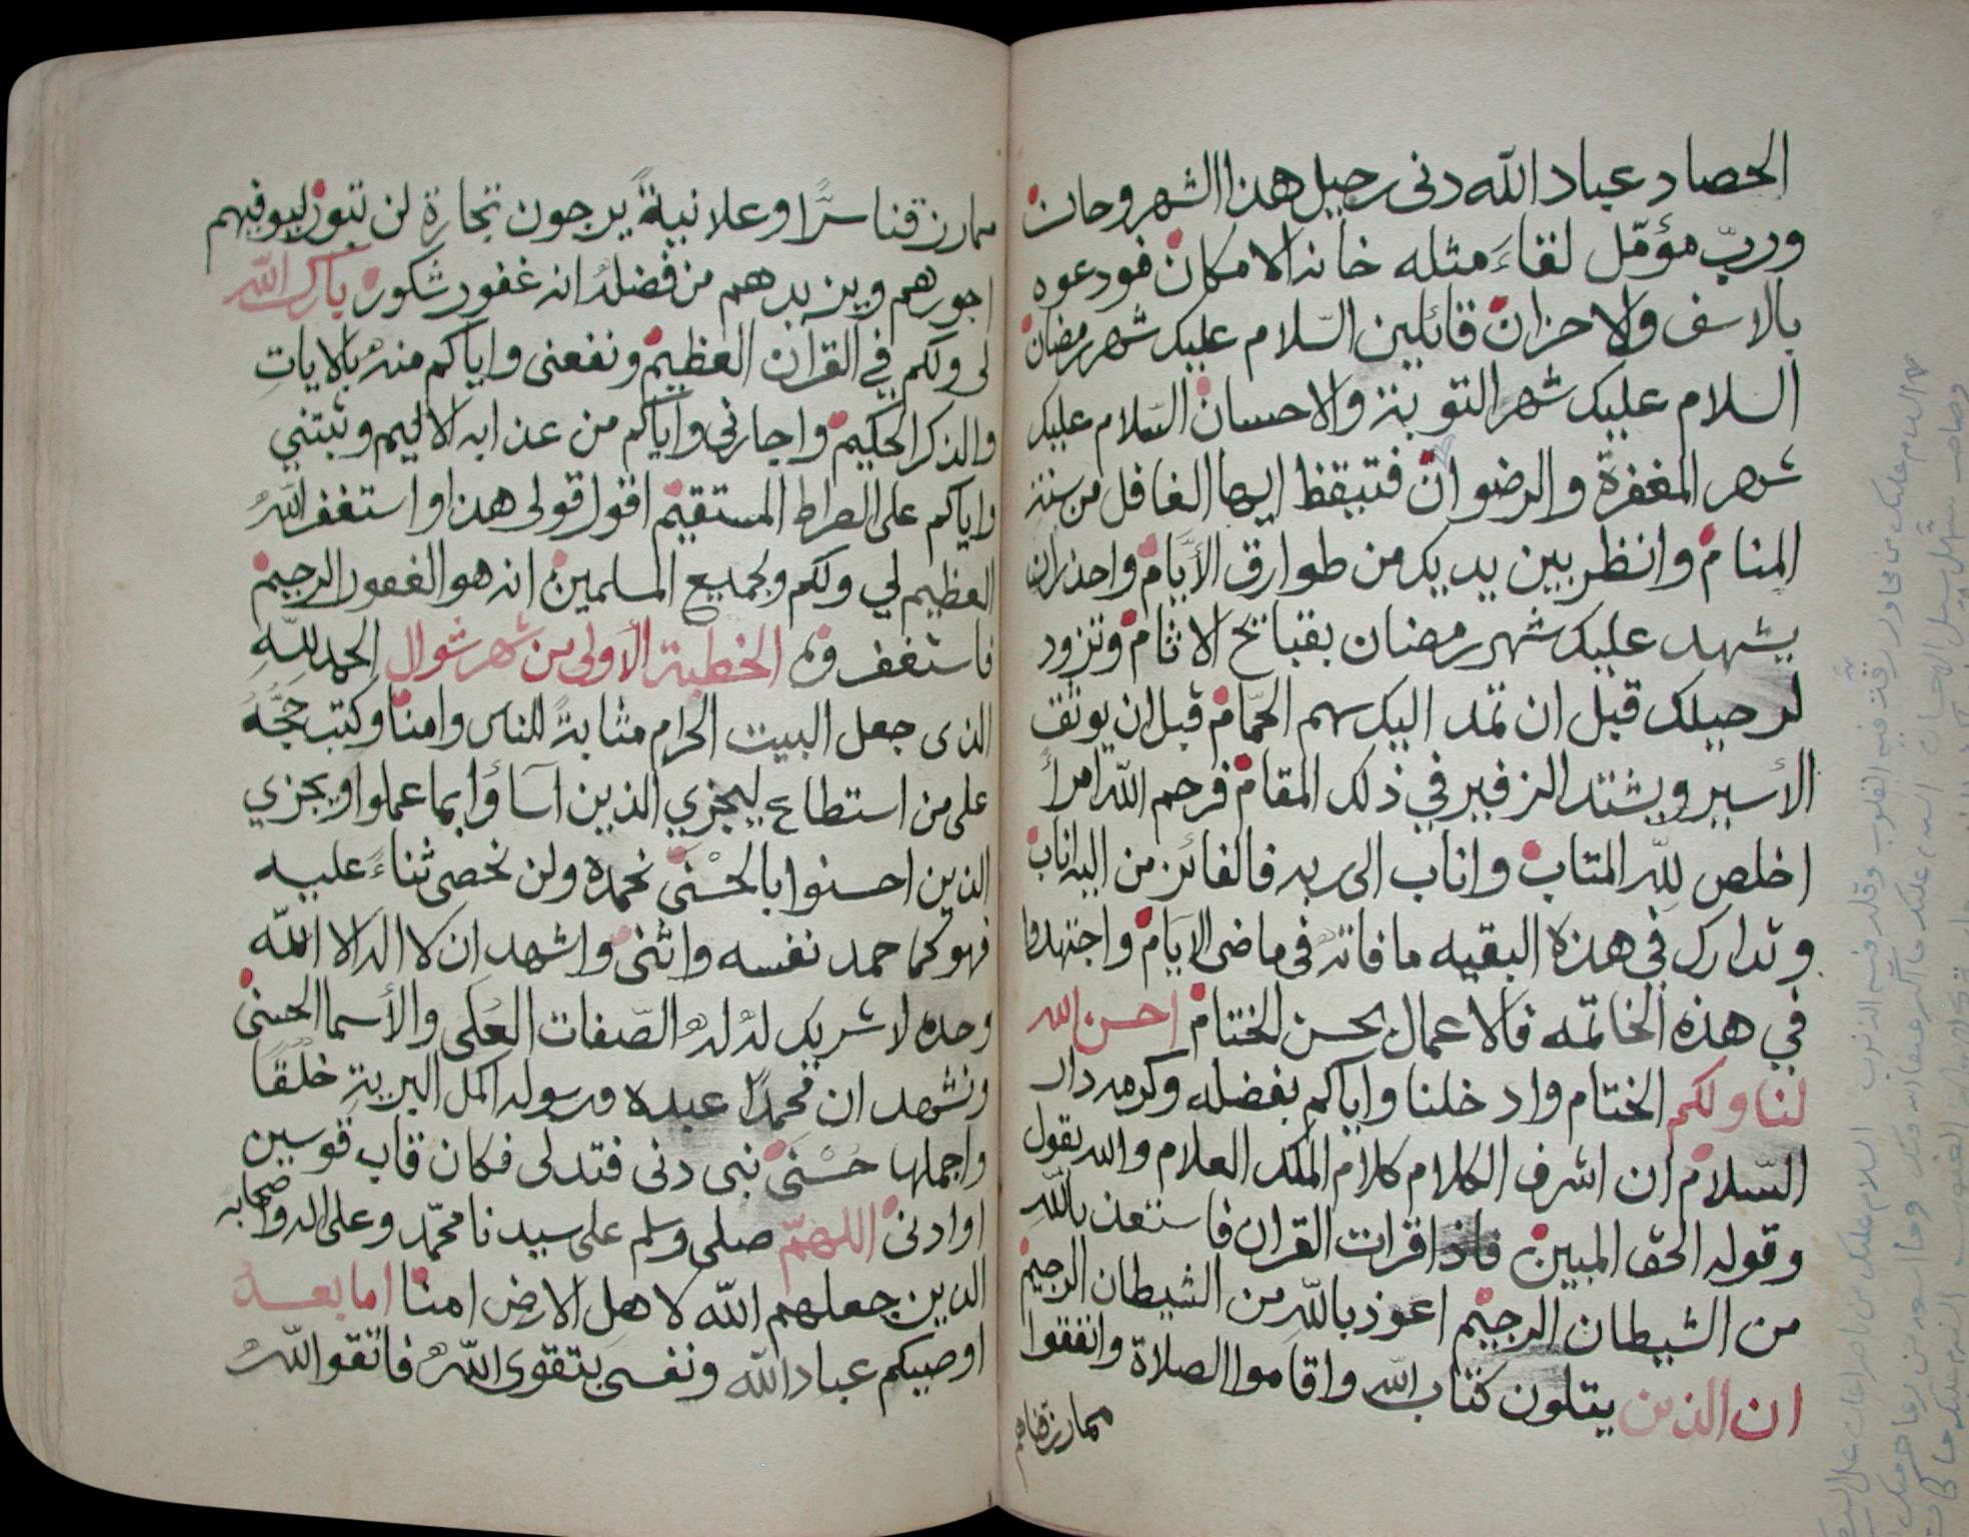 الحصاد عباد الله دنى رحيل هذا الشهر وحان
وربّ مؤمّل لقاءَ مثله خانه الامكان فودعوه
بالاسف والاحزان قائلين السّلام عليك شهر رمضان
السلام عليك شهر التوبة والاحسان السّلام عليك
شهر المغفرة والرضوان فتيقظ ايها الغافل من سنة
المنام وانظر بين يديك من طوارق الأيّام واحذر ان
يشهد عليك شهر رمضان بقبائح الاثام وتزود
لرحيلك قبل ان تمد اليك سهم الحمّام قبل ان يوثق
الأسير ويشتد الزفير في ذلك المقام فرحم الله امرأ
اخلص للّه المتاب واناب الى ربه فالفائز من اليه اناب
وتدارك في هذه البقيه ما فاته في ماضى الايام واجتهدوا
في هذه الخاتمه فالاعمال بحسن الختام احسن الله
لنا ولكم الختام وادخلنا واياكم بفضله وكرمه دار
السّلام ان اشرف الكلام كلام الملك العلام والله يقول
وقوله الحق المبين فاذا قرات القران فاستعذ باللّه
من الشيطان الرجيم اعوذ باللّه من الشيطان الرجيم
ان الذين يتلون كتاب اللّه واقاموا الصلاة وانفقوا
مما رزقناهم
مما رزقنا سرًّا وعلانيةً يرجون تجارة لن تبور ليوفيهم
اجورهم ويزيدهم من فضله انه غفور شكور بارك الله
لى ولكم في القران العظيم ونفعنى واياكم منه بالايات
والذكر الحكيم واجارنى واياكم من عذابه الاليم وثبتني
واياكم على الصراط المستقيم اقول قولى هذا واستغفر اللّه
العظيم لي ولكم ولجميع المسلمين انه هو الغفور الرحيم
فاستغفروه الخطبة الأولى من شهر شوال الحمد للّه
الذى جعل البيت الحرام مثابةً للناس وامنا وكتب حجّه
على من استطاع ليجزي الذين اَساؤا بما عملوا ويجزي
الذين احسنوا بالحسْنى نحمده ولن نحصى ثناءً عليه
فهو كما حمد نفسه واثنى واشهد ان لا اله الا اللّه
وحده لا شريك له له الصّفات العلى والأسما الحسنى
ونشهد ان محمدًا عبده ورسوله اكمل البرية خلقًا
واجملها حسْنى نبى دنى فتدلى فكان قاب قوسين
او ادنى اللهمّ صلى وسلم على سيدنا محمّد وعلى اله واصحابه
الذين جعلهم اللّه لاهل الارض امنا اما بعد
اوصيكم عباد اللّه ونفسى بتقوى اللّه فاتقوا اللّه